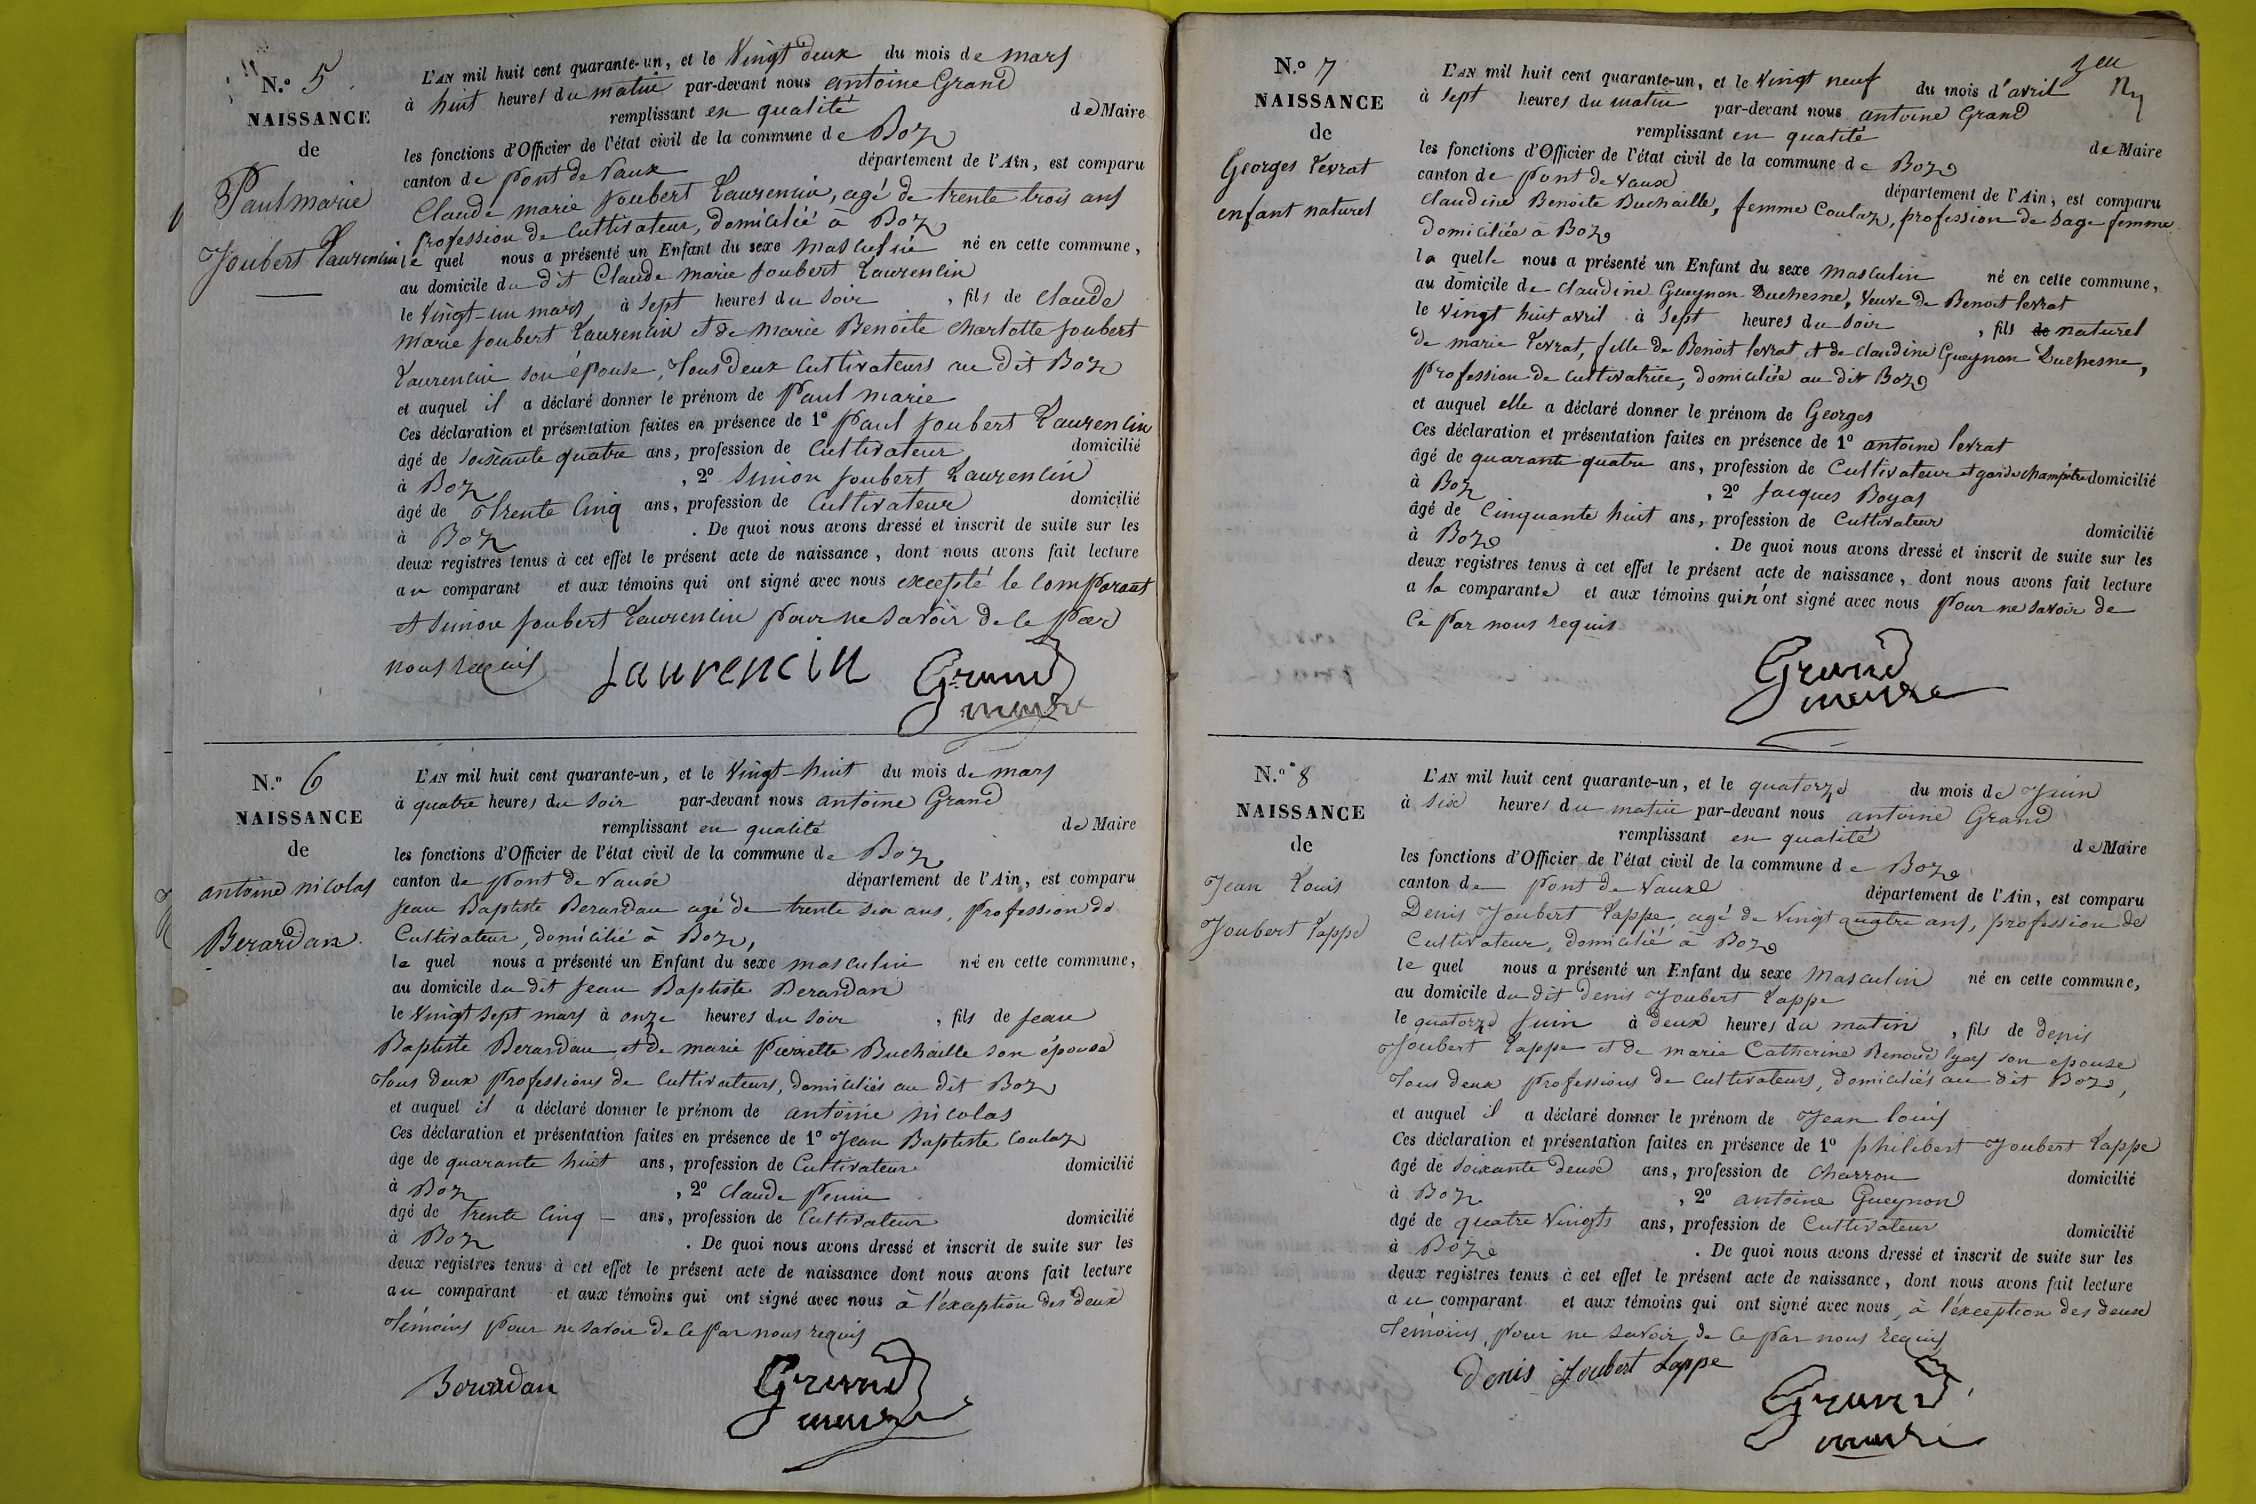 N.o 5
NAISSANCE
de
Paul marie
Joubert Laurencin
L'AN mil huit cent quarante-un, et le Vingt deux du mois de mars
à huit heures du matin par-devant nous antoine Grand
remplissant en qualité de Maire
les fonctions d'Officier de l'état civil de la commune de Boz
canton de pont de Vaux département de l'Ain, est comparu
Claude marie Joubert Laurencin, agé de trente trois ans
profession de Cultivateur, domicilié à Boz
le quel nous a présenté un Enfant du sexe masculin né en cette commune,
au domicile du dit Claude marie Joubert Laurencin
le Vingt-un mars à sept heures du soir, fils de claude
marie Joubert Laurencin et de marie Benoite charlotte Joubert
Laurencin son épouse, tous deux Cultivateurs au dit Boz
et auquel il a déclaré donner le prénom de paul marie
Ces déclaration et présentation faites en présence de 1o paul Joubert Laurencin
âgé de soixante quatre ans, profession de Cultivateur domicilié
à Boz, 2o Simon Joubert Laurencin
âgé de trente cinq ans, profession de Cultivateur domicilié
à Boz. De quoi nous avons dressé et inscrit de suite sur les
deux registres tenus à cet effet le présent acte de naissance, dont nous avons fait lecture
au comparant et aux témoins qui ont signé avec nous excepté le comparant
et Simon Joubert Laurencin pour ne savoir de ce par
nous requis
Laurencin Grand
maire
N.o 6
NAISSANCE
de
antoine nicolas
Berardan
L'AN mil huit cent quarante-un, et le Vingt-huit du mois de mars
à quatre heures du soir par-devant nous antoine Grand
remplissant en qualité de Maire
les fonctions d'Officier de l'état civil de la commune de Boz
canton de pont de Vaux département de l'Ain, est comparu
Jean Baptiste Berardan agé de trente six ans, profession de
Cultivateur, domicilié à Boz,
le quel nous a présenté un Enfant du sexe masculin né en cette commune,
au domicile du dit Jean Baptiste Berardan
le Vingt sept mars à onze heures du soir, fils de Jean
Baptiste Berardan et de marie pierrette Buchaille son épouse
tous deux professions de Cultivateurs, domiciliés au dit Boz
et auquel il a déclaré donner le prénom de antoine nicolas
Ces déclaration et présentation faites en présence de 1o Jean Baptiste Coulaz
âgé de quarante huit ans, profession de Cultivateur domicilié
à Boz, 2o Claude
âgé de trente cinq ans, profession de Cultivateur domicilié
à Boz. De quoi nous avons dressé et inscrit de suite sur les
deux registres tenus à cet effet le présent acte de naissance dont nous avons fait lecture
au comparant et aux témoins qui ont signé avec nous à l'exception des deux
témoins pour ne savoir de ce par nous requis
Berardan Grand
maire
N.o 7
NAISSANCE
de
Georges Levrat
enfant naturel
L'AN mil huit cent quarante-un, et le Vingt neuf du mois d'avril
à sept heures du matin par-devant nous antoine Grand
remplissant en qualité de Maire
les fonctions d'Officier de l'état civil de la commune de Boz
canton de pont de Vaux département de l'Ain, est comparu
Claudine Benoite Buchaille, femme Coulaz, profession de sage femme
domiciliée à Boz
la quelle nous a présenté un Enfant du sexe masculin né en cette commune,
au domicile de claudine Gueynon Duchesne, Veuve de Benoit levrat
le Vingt huit avril à sept heures du soir, fils de naturel
de marie Levrat, fille de Benoit levrat et de claudine Gueynon Duchesne,
profession de cultivatrice, domiciliée au dit Boz
et auquel elle a déclaré donner le prénom de Georges
Ces déclaration et présentation faites en présence de 1o antoine levrat
âgé de quarante quatre ans, profession de Cultivateur et garde champêtre domicilié
à Boz, 2o Jacques Boyat
âgé de Cinquante huit ans, profession de Cultivateur domicilié
à Boz. De quoi nous avons dressé et inscrit de suite sur les
deux registres tenus à cet effet le présent acte de naissance, dont nous avons fait lecture
a la comparante et aux témoins qui n'ont signé avec nous pour ne savoir de
ce par nous requis
Grand
maire
N.o 8
NAISSANCE
de
Jean Louis
Joubert Lappe
L'AN mil huit cent quarante-un, et le quatorze du mois de Juin
à six heures du matin par-devant nous antoine Grand
remplissant en qualité de Maire
les fonctions d'Officier de l'état civil de la commune de Boz
canton de pont de Vaux département de l'Ain, est comparu
Denis Joubert Lappe, agé de Vingt quatre ans, profession de
Cultivateur, domicilié à Boz
le quel nous a présenté un Enfant du sexe masculin né en cette commune,
au domicile du dit denis Joubert Lappe
le quatorze Juin à deux heures du matin, fils de denis
Joubert Lappe et de marie Catherine Renoud lyat son epouse
tous deux professions de Cultivateurs, domiciliés au dit Boz,
et auquel il a déclaré donner le prénom de Jean louis
Ces déclaration et présentation faites en présence de 1o philibert Joubert Lappe
âgé de soixante deux ans, profession de Charron domicilié
à Boz, 2o antoine Gueynon
âgé de quatre Vingts ans, profession de Cultivateur domicilié
à Boz. De quoi nous avons dressé et inscrit de suite sur les
deux registres tenus à cet effet le présent acte de naissance, dont nous avons fait lecture
au comparant et aux témoins qui ont signé avec nous, à l'exception des deux
témoins, pour ne savoir de ce par nous requis
Denis Joubert Lappe Grand
maire